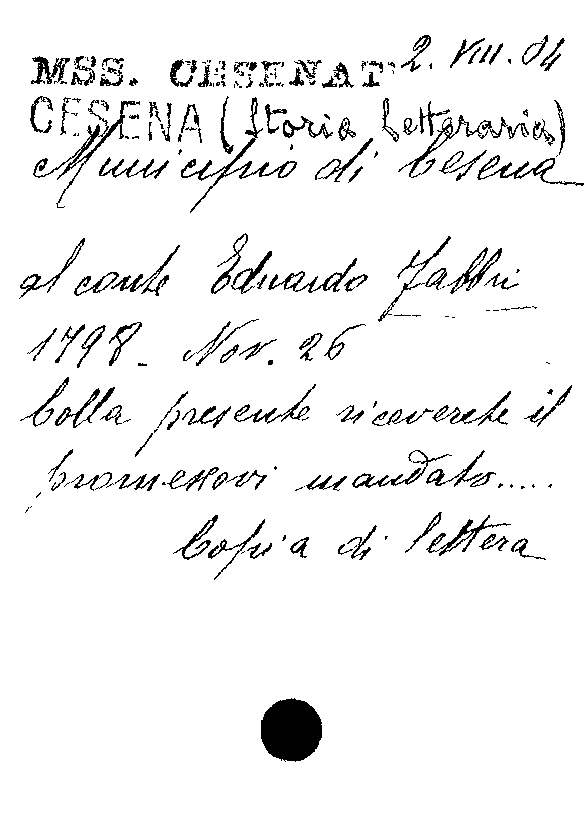 MSS. CESENATI 2. VIII. 04
CESENA (Storia Letteraria)
Municipio di Cesena
al conte Eduardo Fabbri
1798 - Nov. 26
Colla presente riceverete il
promessovi mandato.....
Copia di lettera